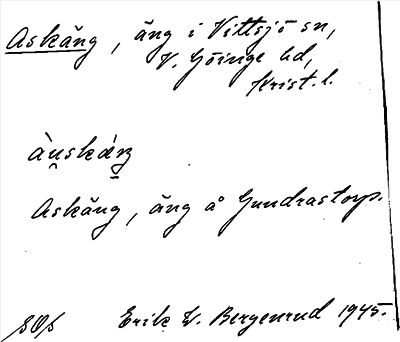 Askäng, äng i Vittsjö sn,
V. Göinge hd,
Krist. l.
Askäng, äng å Gundrastorp.
Erik W. Bergenrud 1945.